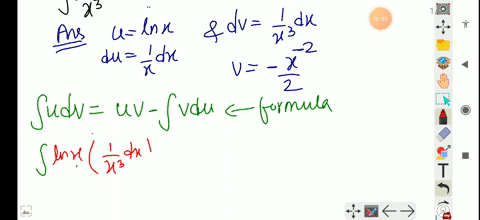 ∫ x³
Ans u = lnx & dv = 1/x³ dx
du = 1/x dx v = - x⁻²/2
∫udv = uv - ∫vdu ← formula
∫ lnx ( 1/x³ dx )
T